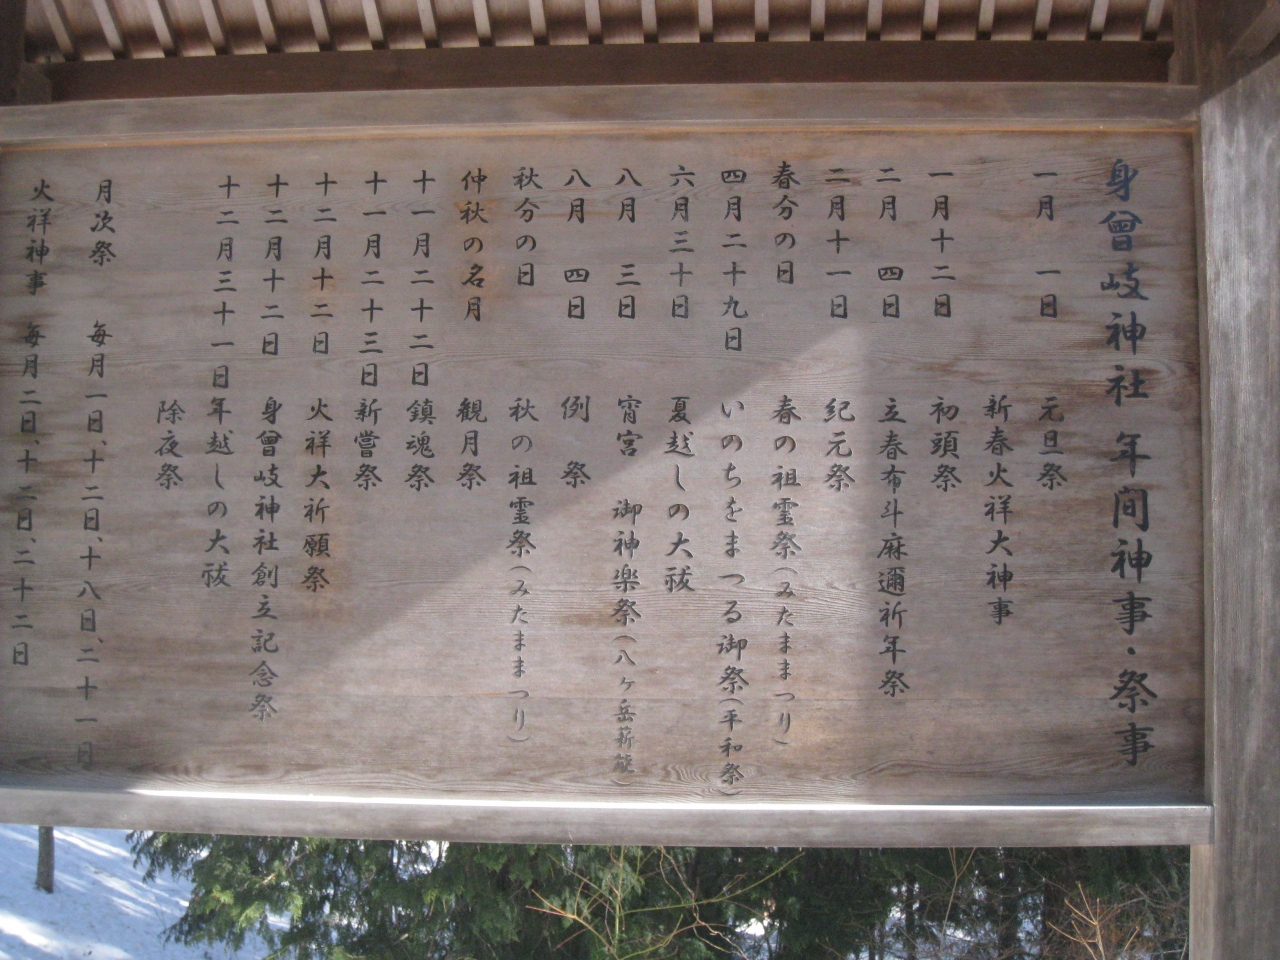 身曾岐神社 年間神事・祭事
一月 一日 元旦祭
新春火祥大神事
一月十二日 初頭祭
二月 四日 立春布斗麻邇祈年祭
二月十一日 紀元祭
春分の日 春の祖霊祭(みたままつり)
四月二十九日 いのちをまつる御祭(平和祭)
六月三十日 夏越しの大祓
八月 三日 宵宮 御神楽祭(八ヶ岳薪能)
八月 四日 例 祭
秋分の日 秋の祖霊祭(みたままつり)
仲秋の名月 観月祭
十一月二十二日 鎮魂祭
十一月二十三日 新嘗祭
十二月十二日 火祥大祈願祭
十二月十二日 身曾岐神社創立記念祭
十二月三十一日 年越しの大祓
除夜祭
月次祭 毎月一日、十二日、十八日、二十一日
火祥神事 毎月二日、十二日、二十二日